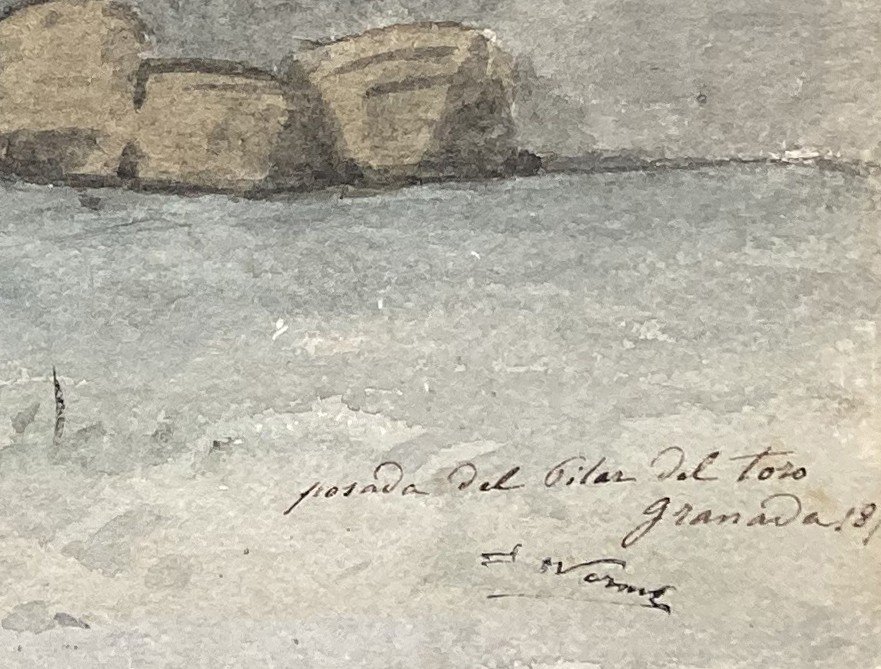 posada del Pilar del toro
Granada. 18
J Worms